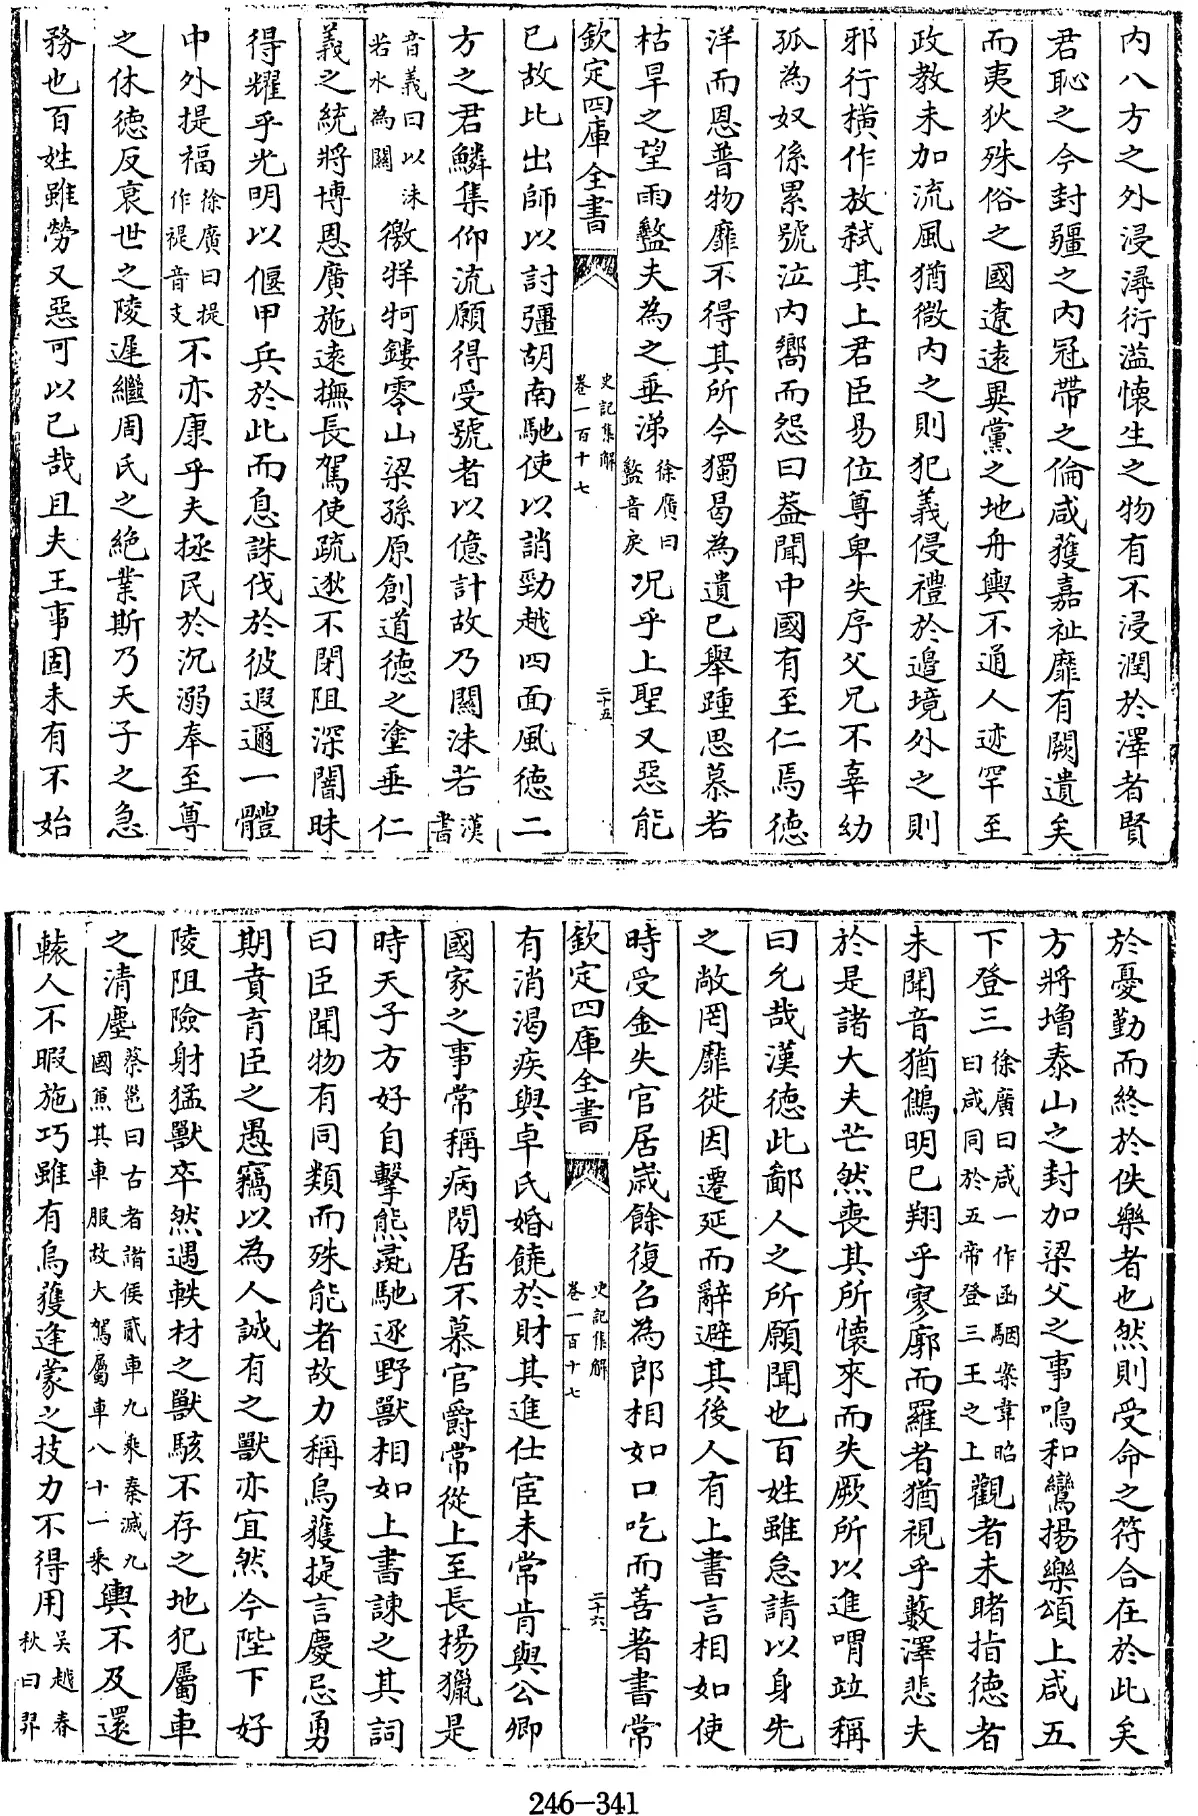 內八方之外浸潯衍溢懷生之物有不浸潤於澤者賢
君恥之今封疆之內冠帶之倫咸獲嘉祉靡有闕遺矣
而夷狄殊俗之國遼遠異黨之地舟輿不通人迹罕至
政教未加流風猶微內之則犯義侵禮於邉境外之則
邪行橫作放弒其上君臣易位尊卑失序父兄不辜幼
孤為奴係累號泣內嚮而怨曰葢聞中國有至仁焉德
洋而恩普物靡不得其所今獨曷為遺已舉踵思慕若
枯旱之望雨盭夫為之垂涕徐廣曰盭音戾況乎上聖又惡能
欽定四庫全書 史記集解 卷一百十七 二十五
已故北出師以討彊胡南馳使以誚勁越四面風德二
方之君鱗集仰流願得受號者以億計故乃關沬若漢書
音義曰以沬若水為關徼牂牁鏤零山梁孫原創道德之塗垂仁
義之統將博恩廣施逺撫長駕使疏逖不閉阻深闇昧
得耀乎光明以偃甲兵於此而息誅伐於彼遐邇一體
中外提福徐廣曰提作禔音支不亦康乎夫拯民於沉溺奉至尊
之休德反衰世之陵遲繼周氏之絕業斯乃天子之急
務也百姓雖勞又惡可以已哉且夫王事固未有不始
於憂勤而終於佚樂者也然則受命之符合在於此矣
方將增泰山之封加梁父之事鳴和鸞揚樂頌上咸五
下登三徐廣曰咸一作函駰案韋昭曰咸同於五帝登三王之上觀者未睹指德者
未聞音猶鷦明已翔乎寥廓而羅者猶視乎藪澤悲夫
於是諸大夫芒然喪其所懷來而失厥所以進喟竝稱
曰允哉漢德此鄙人之所願聞也百姓雖怠請以身先
之敞罔靡徙因遷延而辭避其後人有上書言相如使
時受金失官居嵗餘復召為郎相如口吃而善著書常
欽定四庫全書 史記集解 卷一百十七 二十六
有消渴疾與卓氏婚饒於財其進仕宦未常肯與公卿
國家之事常稱病閒居不慕官爵常從上至長揚獵是
時天子方好自擊熊彘馳逐野獸相如上書諫之其詞
曰臣聞物有同類而殊能者故力稱烏獲捷言慶忌勇
期賁育臣之愚竊以為人誠有之獸亦宜然今陛下好
陵阻險射猛獸卒然遇軼材之獸駭不存之地犯屬車
之清塵蔡邕曰古者諸侯貳車九乘秦滅九國兼其車服故大駕屬車八十一乘輿不及還
轅人不暇施巧雖有烏獲逢蒙之技力不得用吳越春秋曰羿
246-341